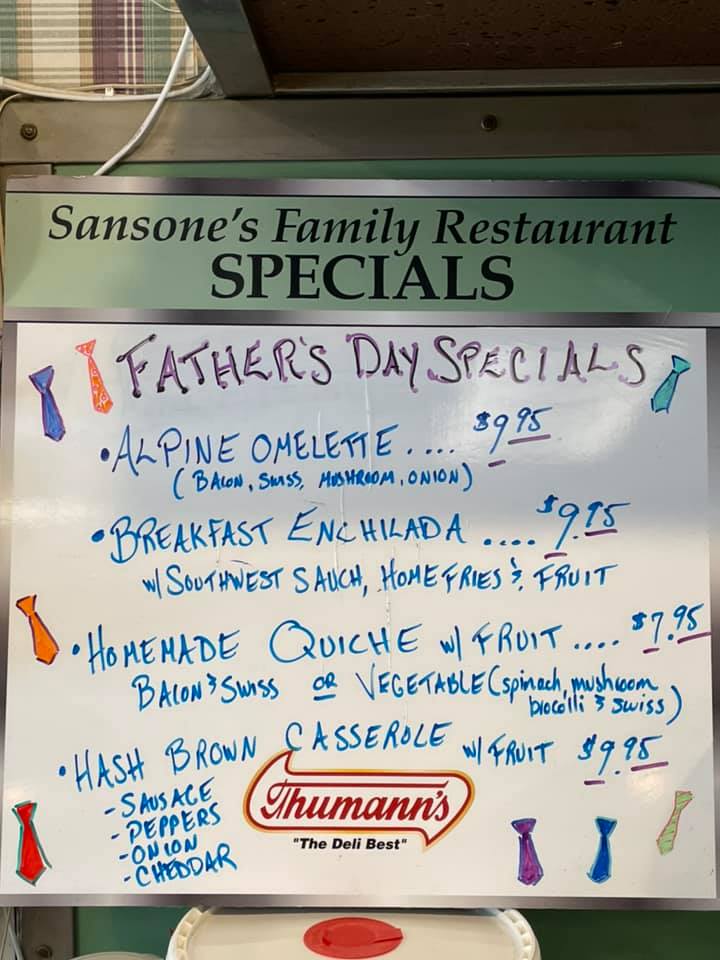 Sansone's Family Restaurant
SPECIALS
FATHER'S DAY SPECIALS
•ALPINE OMELETTE .... $9.95
(BACON, SWISS, MUSHROOM, ONION)
•BREAKFAST ENCHILADA .... $9.95
w/ SOUTHWEST SAUCH, HOME FRIES & FRUIT
•HOMEMADE QUICHE w/ FRUIT .... $7.95
BACON & SWISS OR VEGETABLE (spinach, mushroom,
brocolli & swiss)
•HASH BROWN CASSEROLE w/ FRUIT $9.95
-SAUSAGE
-PEPPERS
-ONION
-CHEDDAR
Thumann's
"The Deli Best"